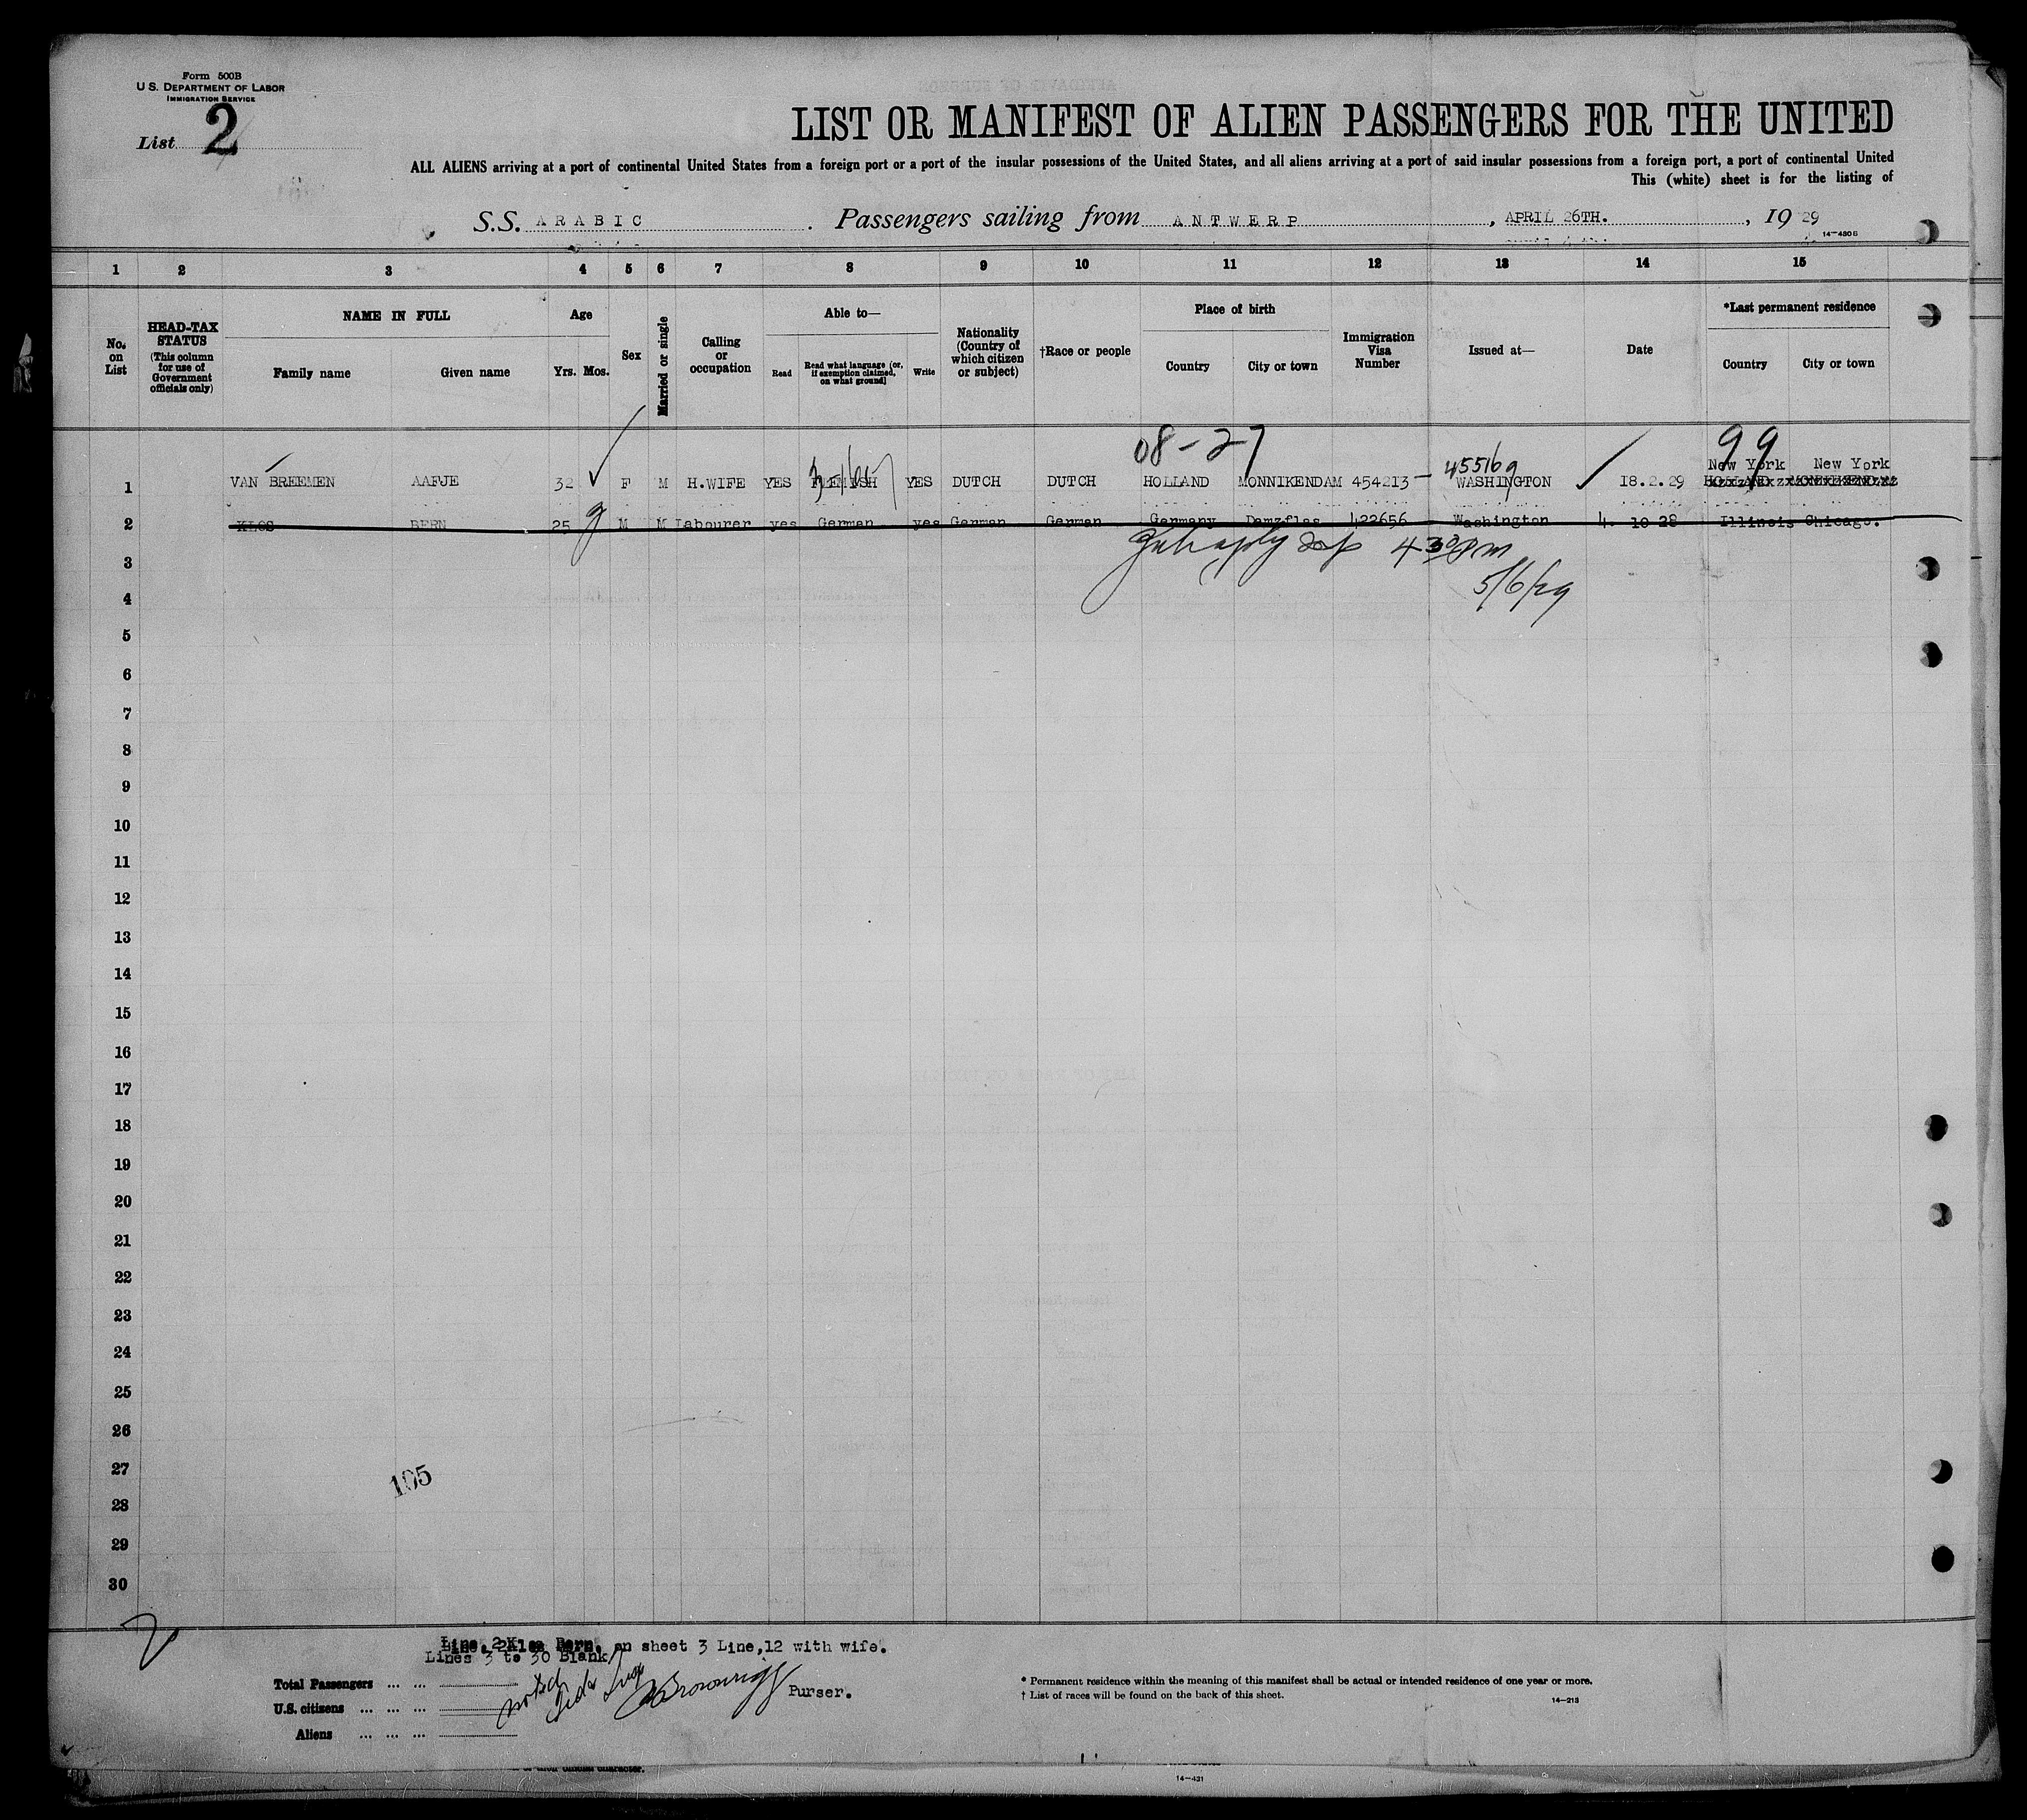 Form 500B
U.S. DEPARTMENT OF LABOR
IMMIGRATION SERVICE
List 2
LIST OR MANIFEST OF ALIEN PASSENGERS FOR THE UNITED
ALL ALIENS arriving at a port of continental United States from a foreign port or a port of the insular possessions of the United States, and all aliens arriving at a port of said insular possessions from a foreign port, a port of continental United
This (white) sheet is for the listing of
S.S. ARABIC . Passengers sailing from ANTWERP , APRIL 26TH. , 19 29
14-430 B
1 2 3 4 5 6 7 8 9 10 11 12 13 14 15
No. on List
HEAD-TAX STATUS (This column for use of Government officials only)
NAME IN FULL
Family name Given name
Age
Yrs. Mos.
Sex
Married or single
Calling or occupation
Able to—
Read Read what language (or, if exemption claimed, on what ground) Write
Nationality (Country of which citizen or subject)
†Race or people
Place of birth
Country City or town
Immigration Visa Number
Issued at—
Date
*Last permanent residence
Country City or town
08-27 99
455169 New York New York
1 VAN BREEMEN AAFJE 32 F M H.WIFE YES FLEMISH YES DUTCH DUTCH HOLLAND MONNIKENDAM 454213 — WASHINGTON 18.2.29 HOLLAND MONNIKENDAM
2 KLOS BERN 25 M M Labourer yes German yes German German Germany 422656 Washington 4. 10 28 Illinois Chicago.
4 30 PM
5/6/29
3
4
5
6
7
8
9
10
11
12
13
14
15
16
17
18
19
20
21
22
23
24
25
26
27
28
29
30
105
2
Line, 2 Klos Bern, on sheet 3 Line,12 with wife.
Lines 3 to 30 Blank
Total Passengers ... ...
U.S. citizens ... ... ...
Aliens ... ... ...
noted
Purser.
* Permanent residence within the meaning of this manifest shall be actual or intended residence of one year or more.
† List of races will be found on the back of this sheet.
14-213
14-421